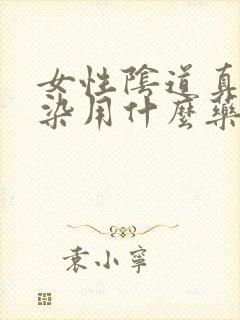 女性陰道真
染用什麼藥
袁小寧